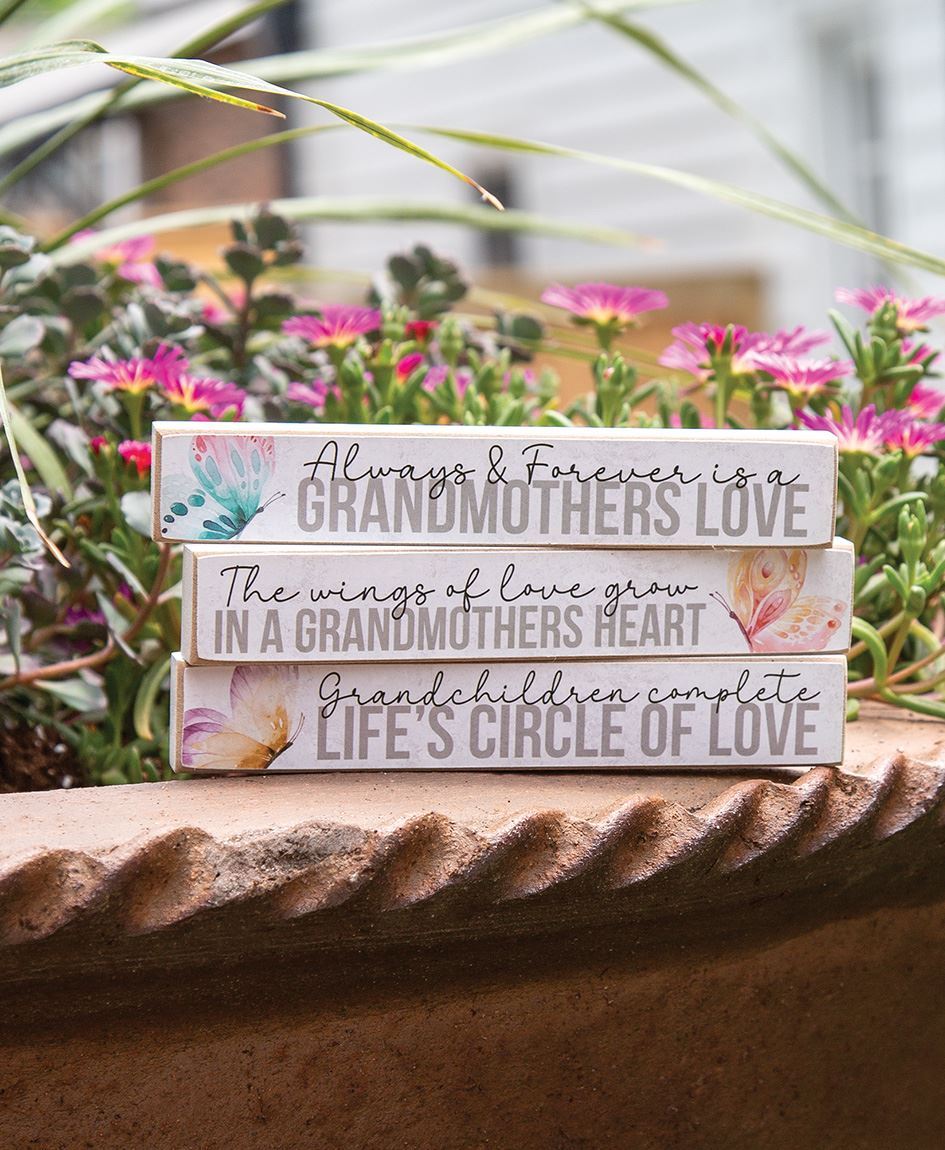 Always & Forever is a
GRANDMOTHERS LOVE
The wings of love grow
IN A GRANDMOTHERS HEART
Grandchildren complete
LIFE'S CIRCLE OF LOVE